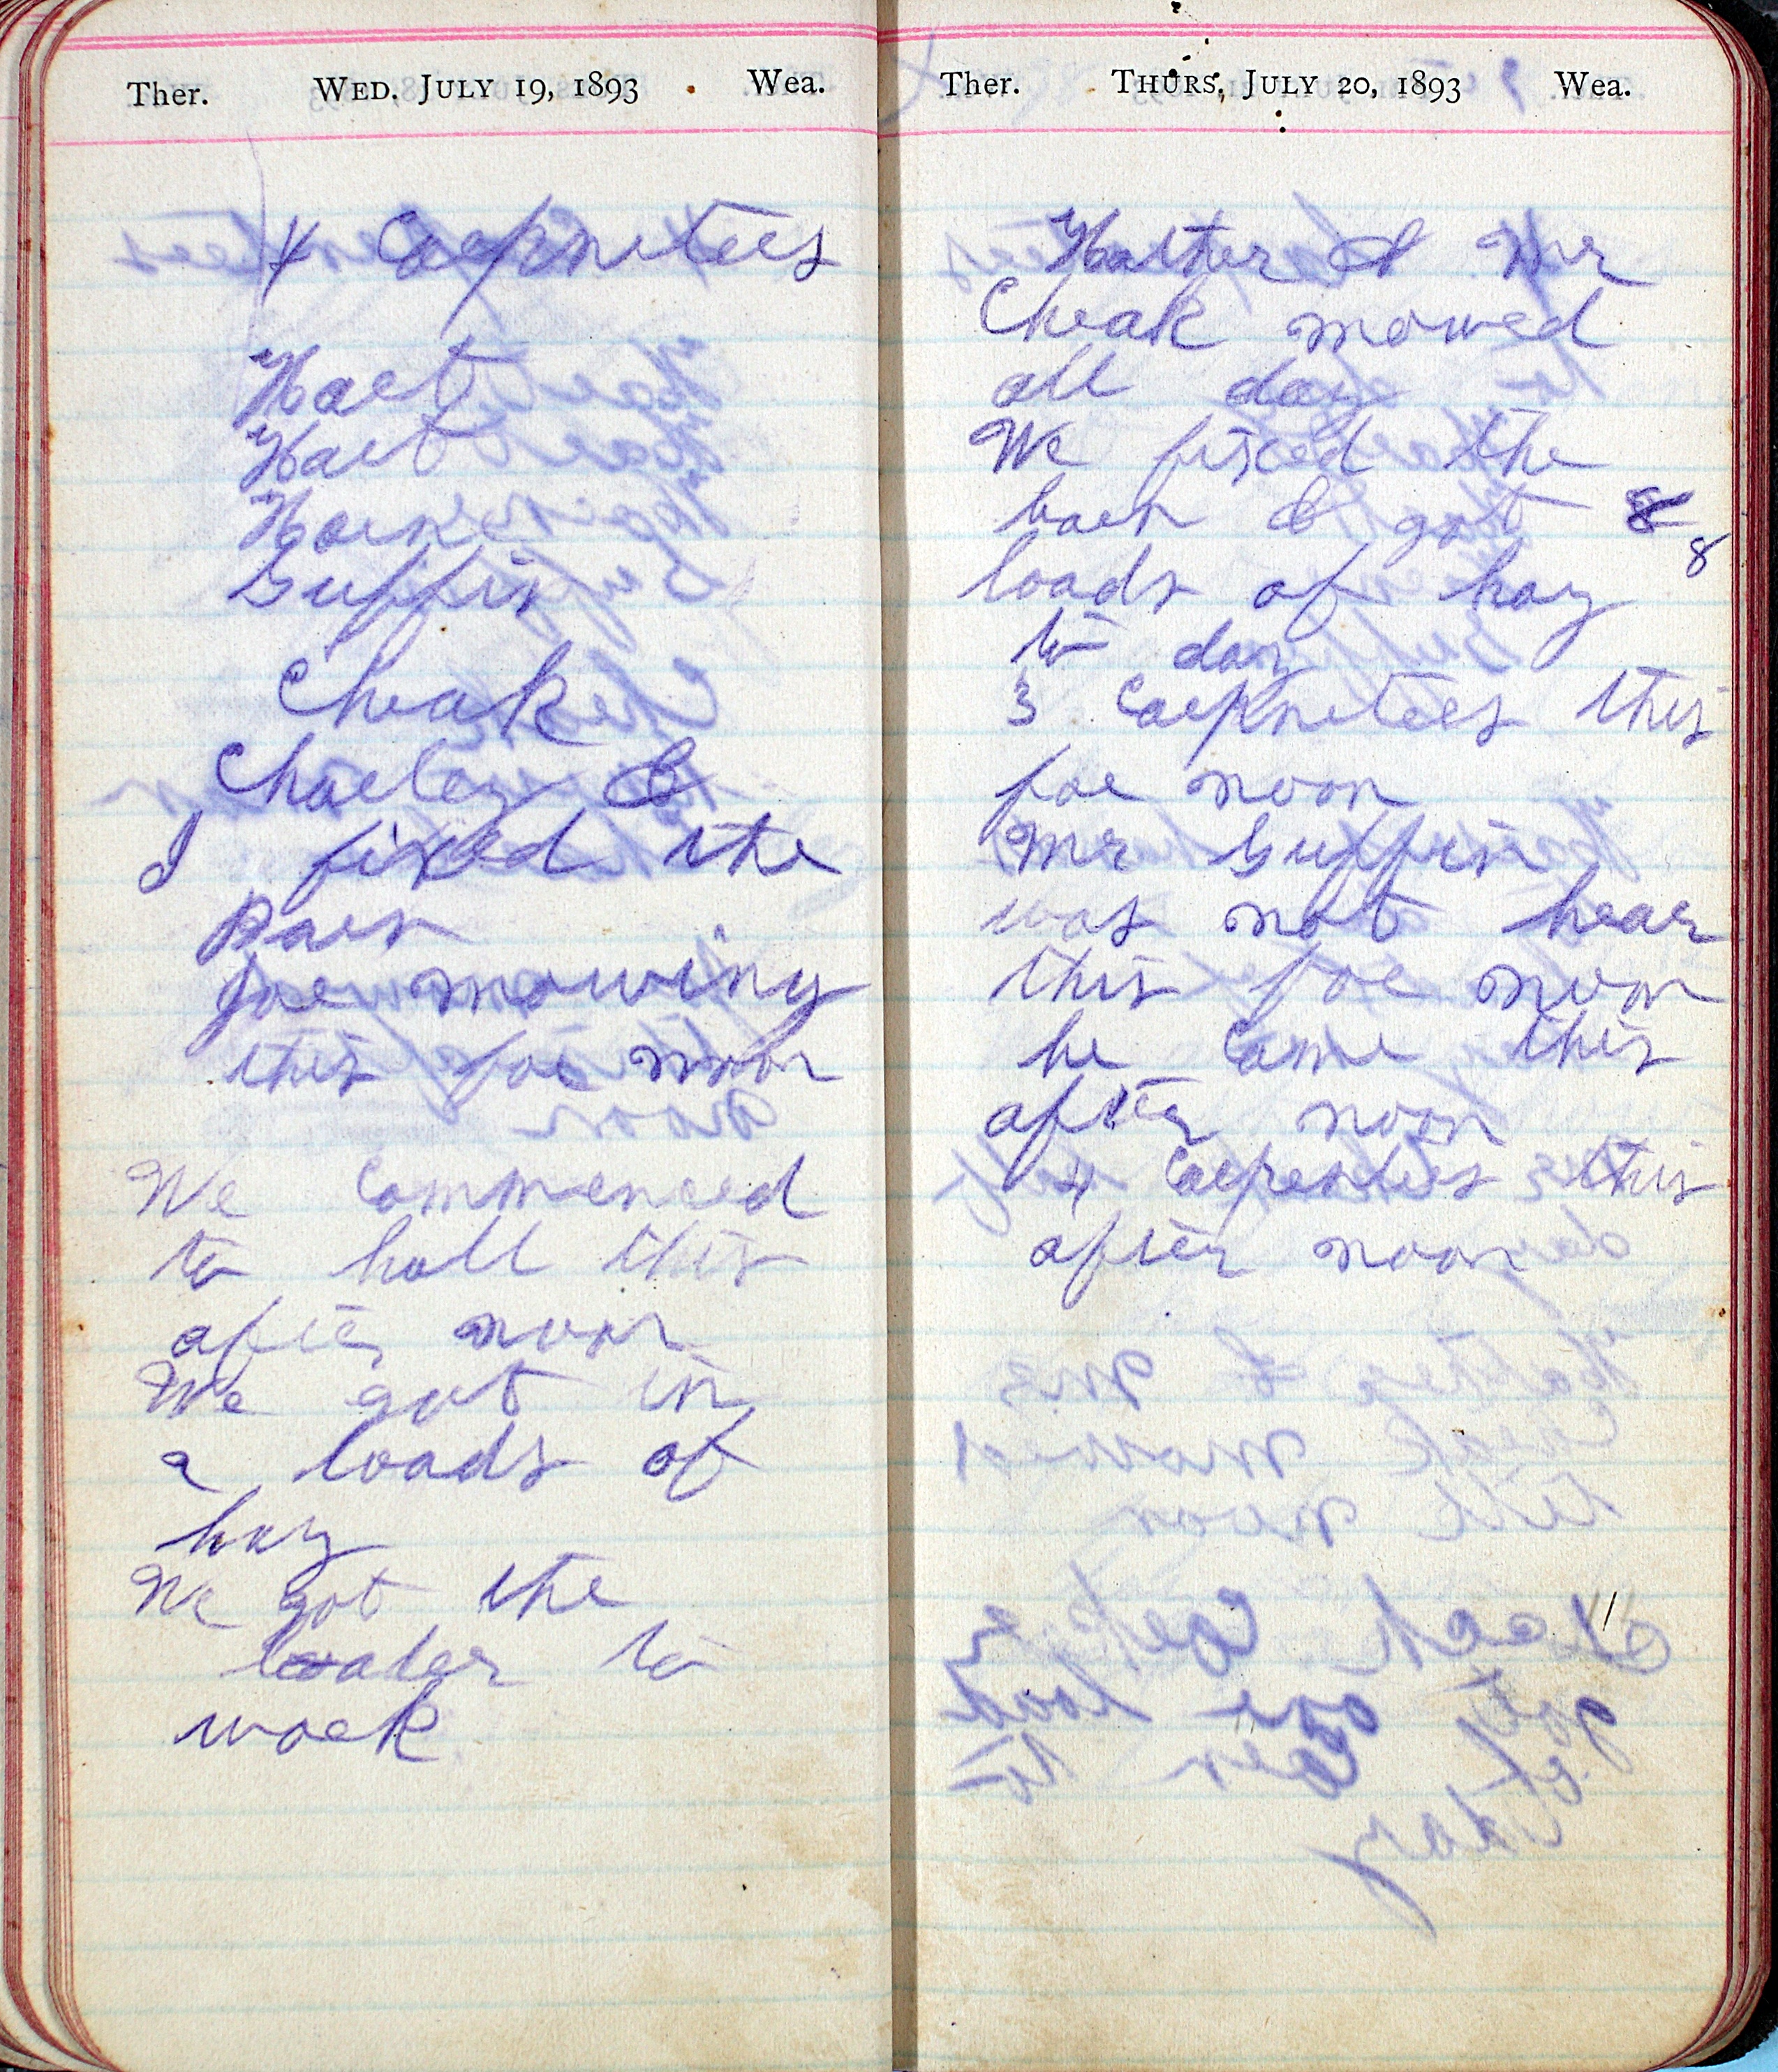 Ther. WED. JULY 19, 1893 Wea.
4 Carpneters
Hart
Hart
Harker
Guffin
Cheak
Charley &
I fixed the
Barn
for mowing
this for noon
We Commenced
to hall this
after noon
We got in
2 loads of
hay
We got the
loader to
work
Ther. THURS. JULY 20, 1893 Wea.
Walter & Mr
Cheak mowed
all day
We fixed the
barn & got 8
8
loads of hay
to day
3 Carpneters this
for noon
Mr Guffin
was not hear
this for noon
he Came this
after noon
4 Carpenters this
after noon